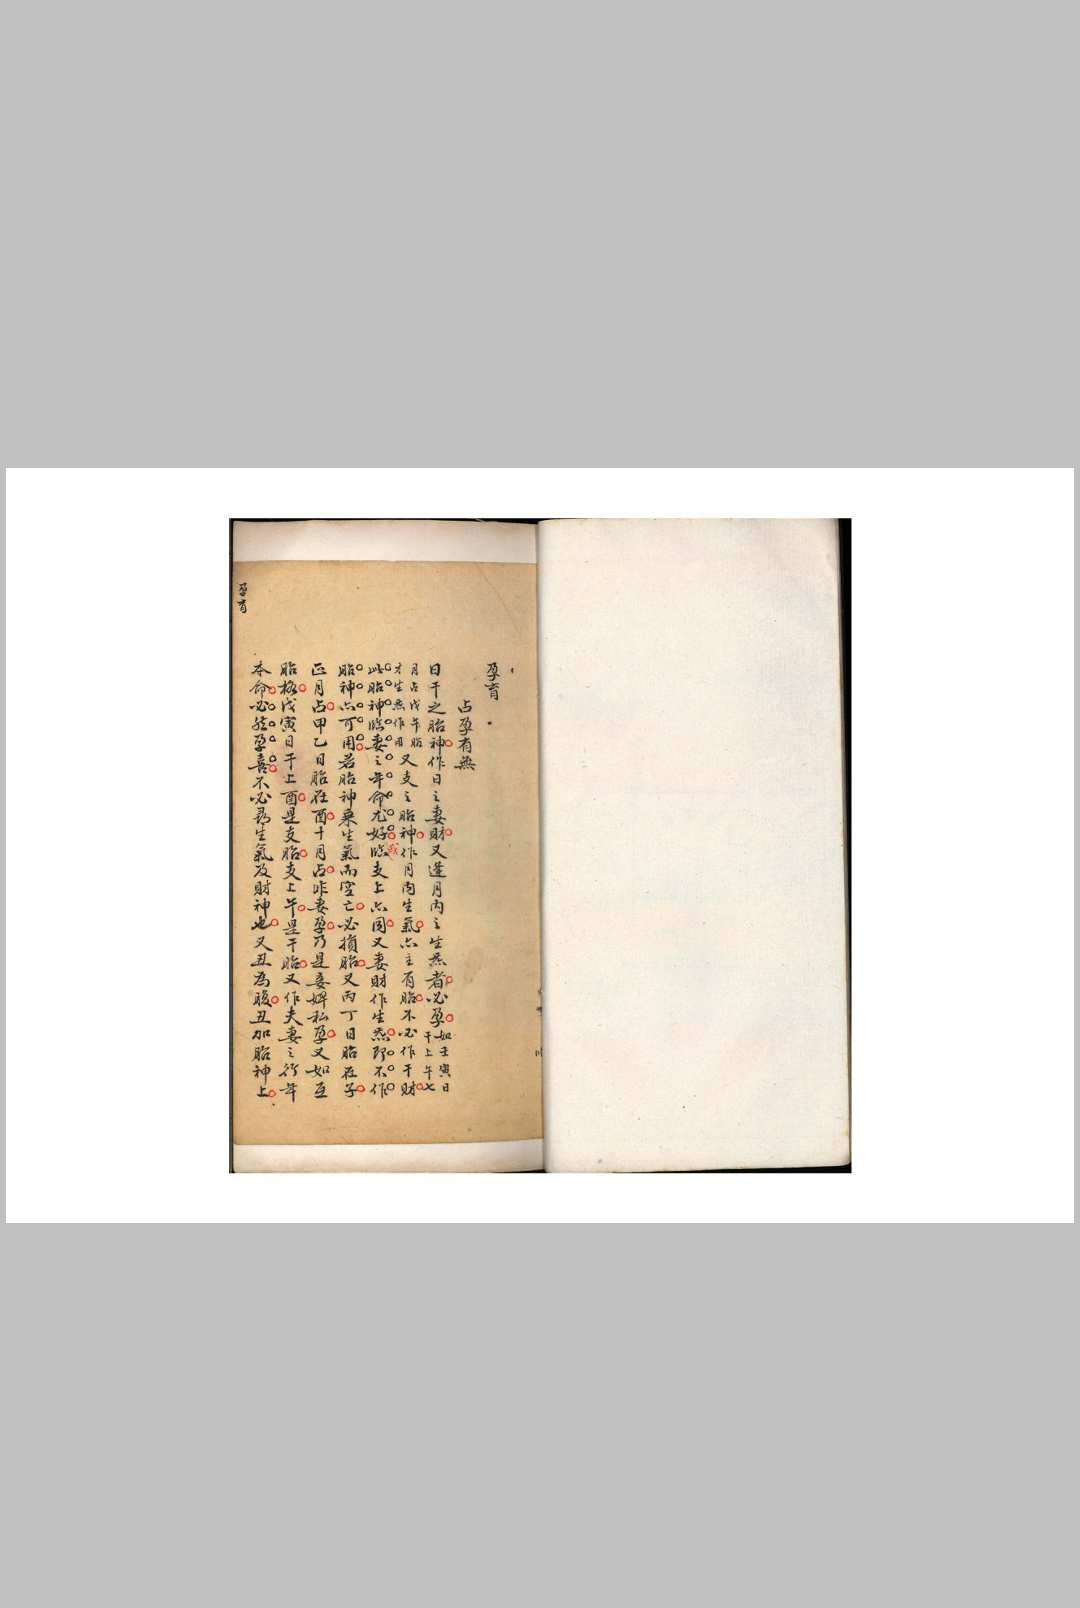 孕育
占孕有無
日干之胎神作日之妻財又逢月內之生炁者必孕如壬寅日干上午七
月占戊午胎才生炁作用又支之胎神作月內生氣亦主有胎不必作干財
此胎神臨妻之年命尤好或臨支上亦同又妻財作生炁即不作
胎神亦可用若胎神乘生氣而空亡必損胎又丙丁日胎在子
正月占甲乙日胎在酉十月占非妻孕乃是妾婢私孕又如互
胎格戊寅日干上酉是支胎支上午是干胎又作夫妻之行年
本命必然孕喜不必尋生氣及財神也又丑為腹丑加胎神上
孕育